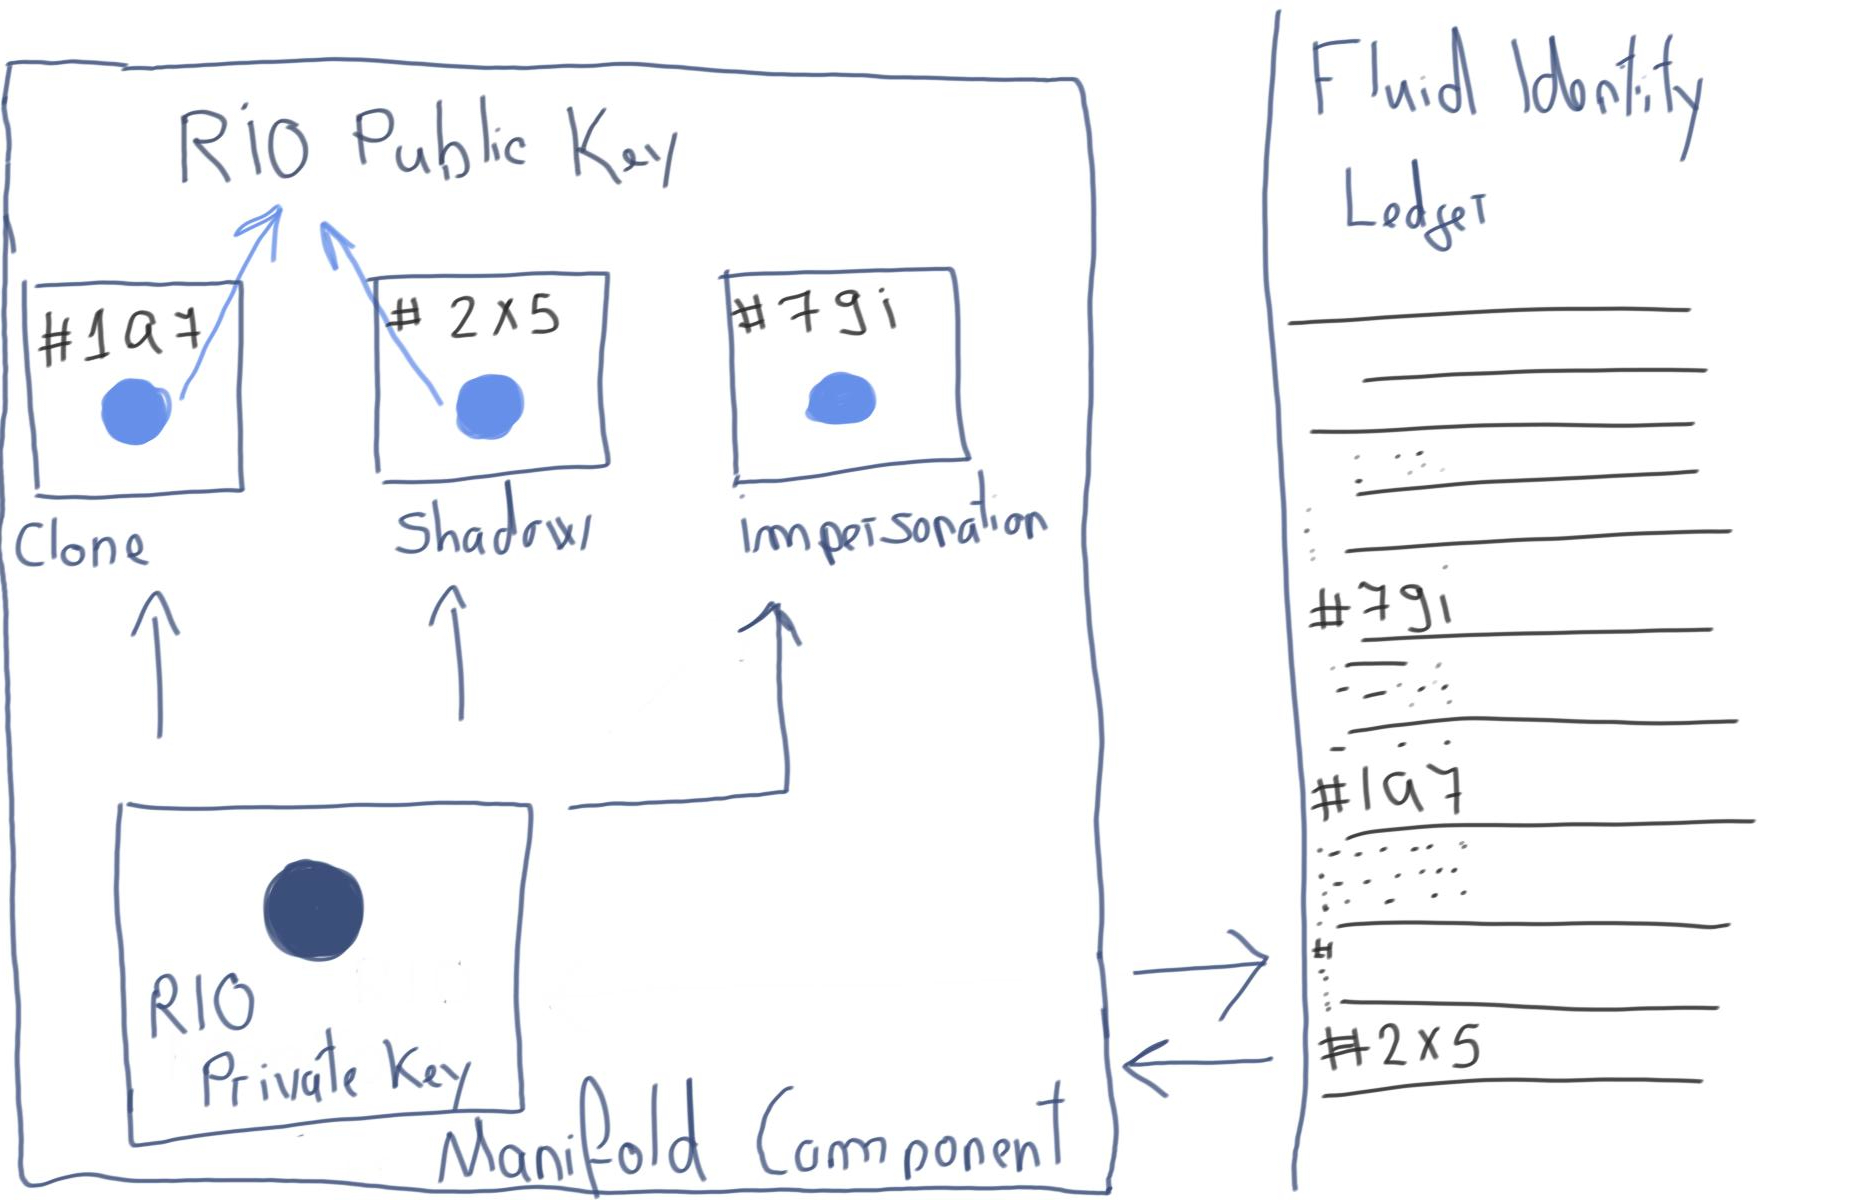 RIO Public Key
#1a7
# 2x5
#79i
Clone
Shadow
impersonation
RIO
Private Key
Manifold Component
Fluid Identity
Ledger
#79i
#1a7
#
#2x5